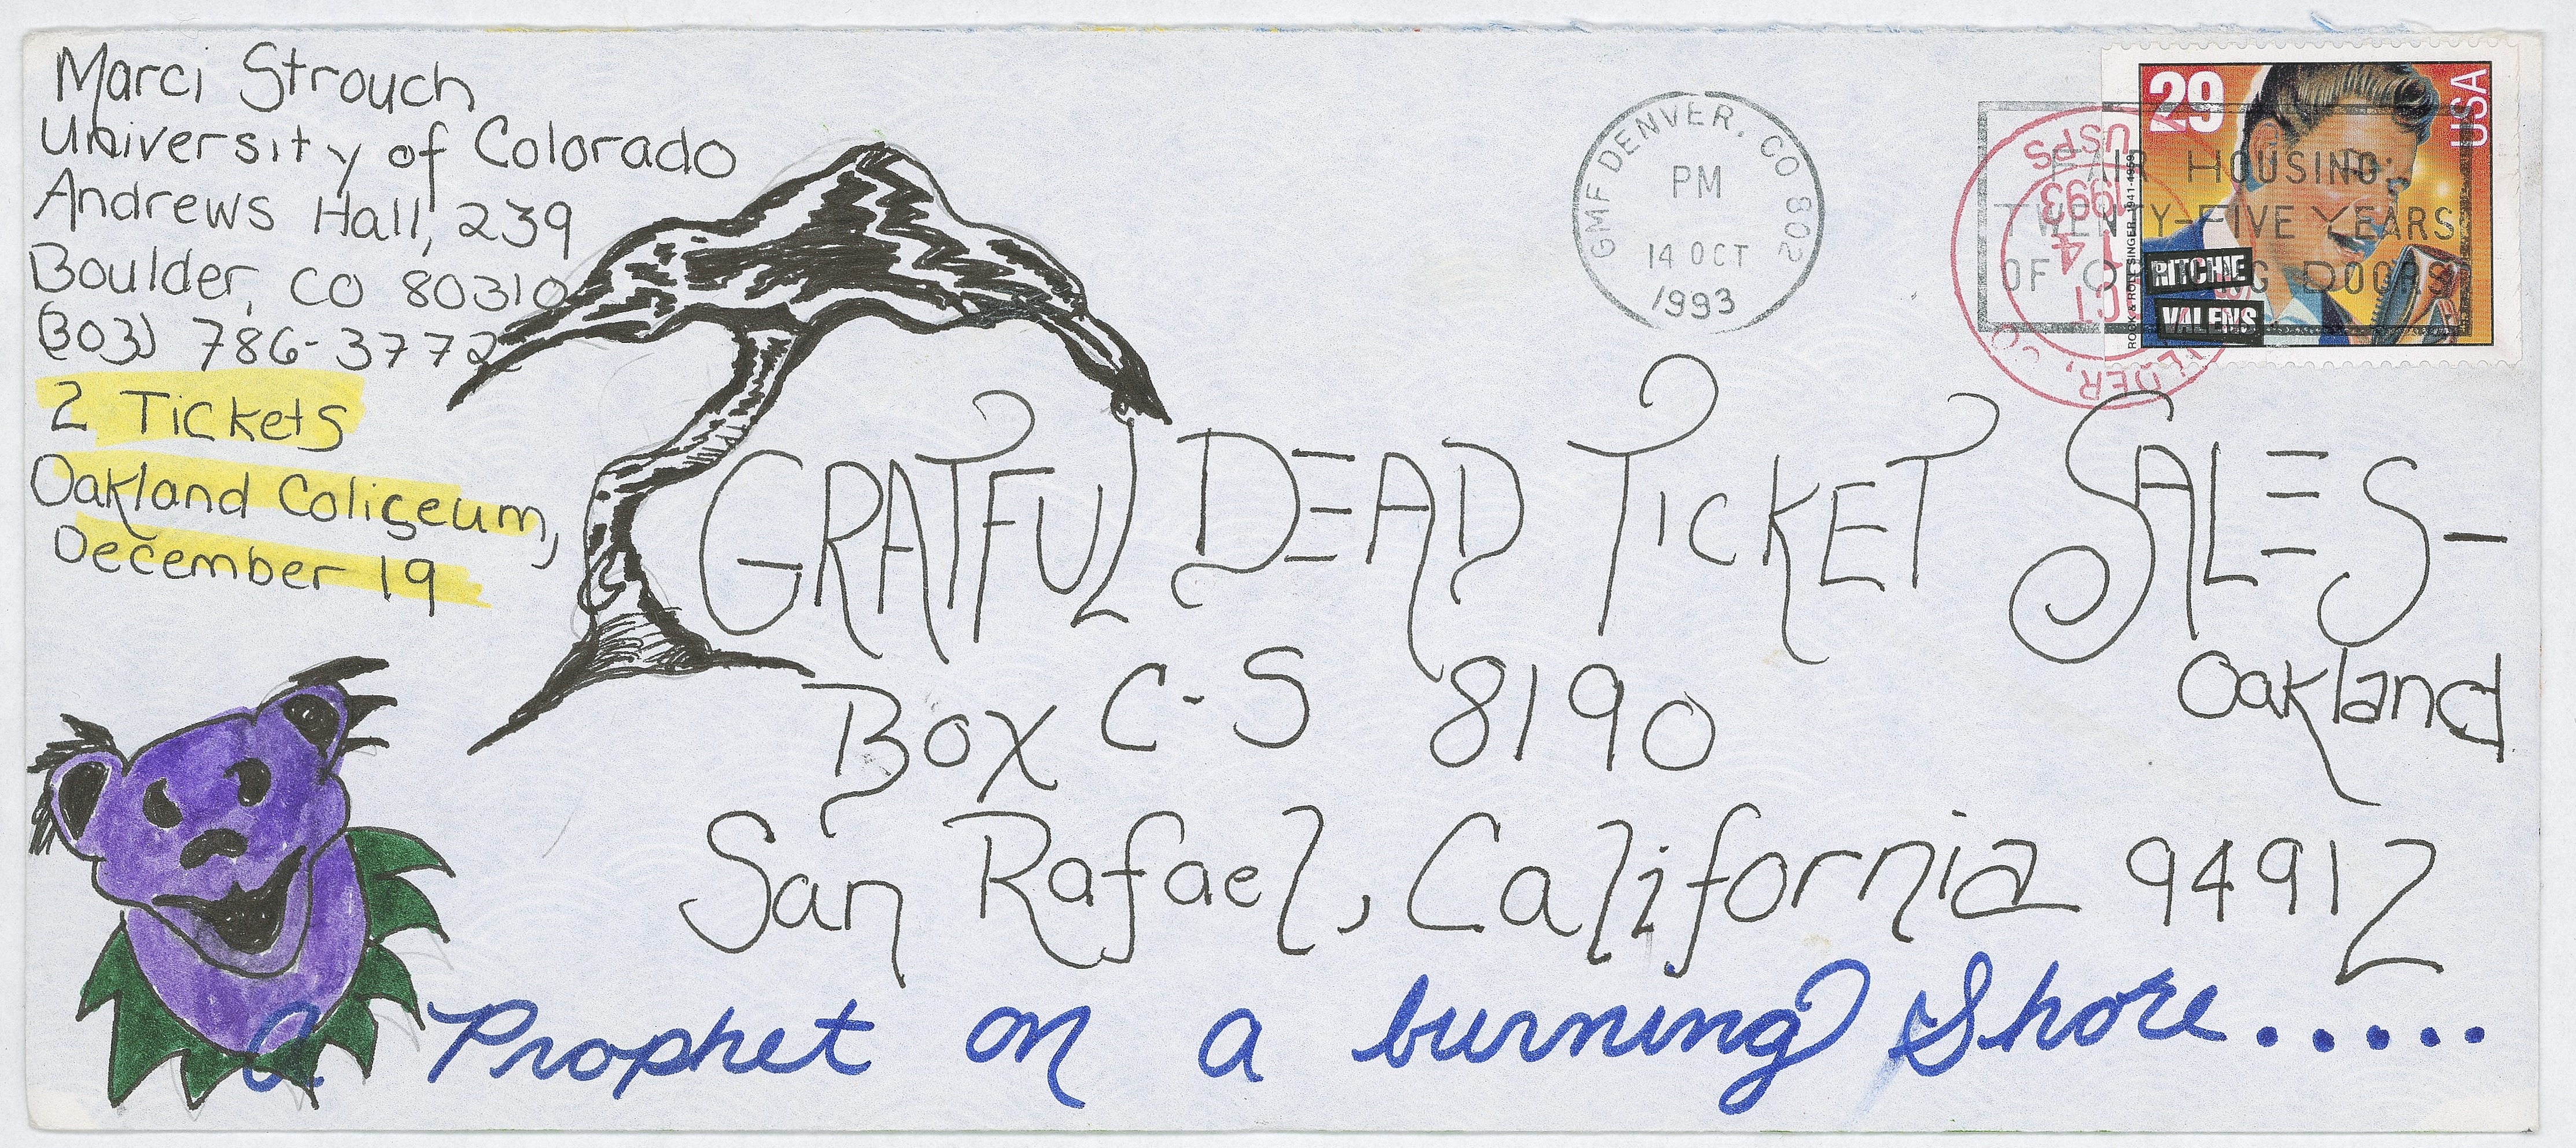 Marci Strouch
University of Colorado
Andrews Hall, 239
Boulder, CO 80310
(303) 786-3772
2 Tickets
Oakland Coliseum,
December 19
GMF DENVER, CO 802
PM
14 OCT
1993
FAIR HOUSING:
TWENTY-FIVE YEARS
OF OPENING DOORS
USPS
1993
14
OCT
29
USA
RITCHIE
VALENS
ROCK & ROLL SINGER 1941-1959
GRATFUL DEAD TICKET SALES-
Oakland
Box C-S 8190
San Rafael, California 94912
a Prophet on a burning Shore.....